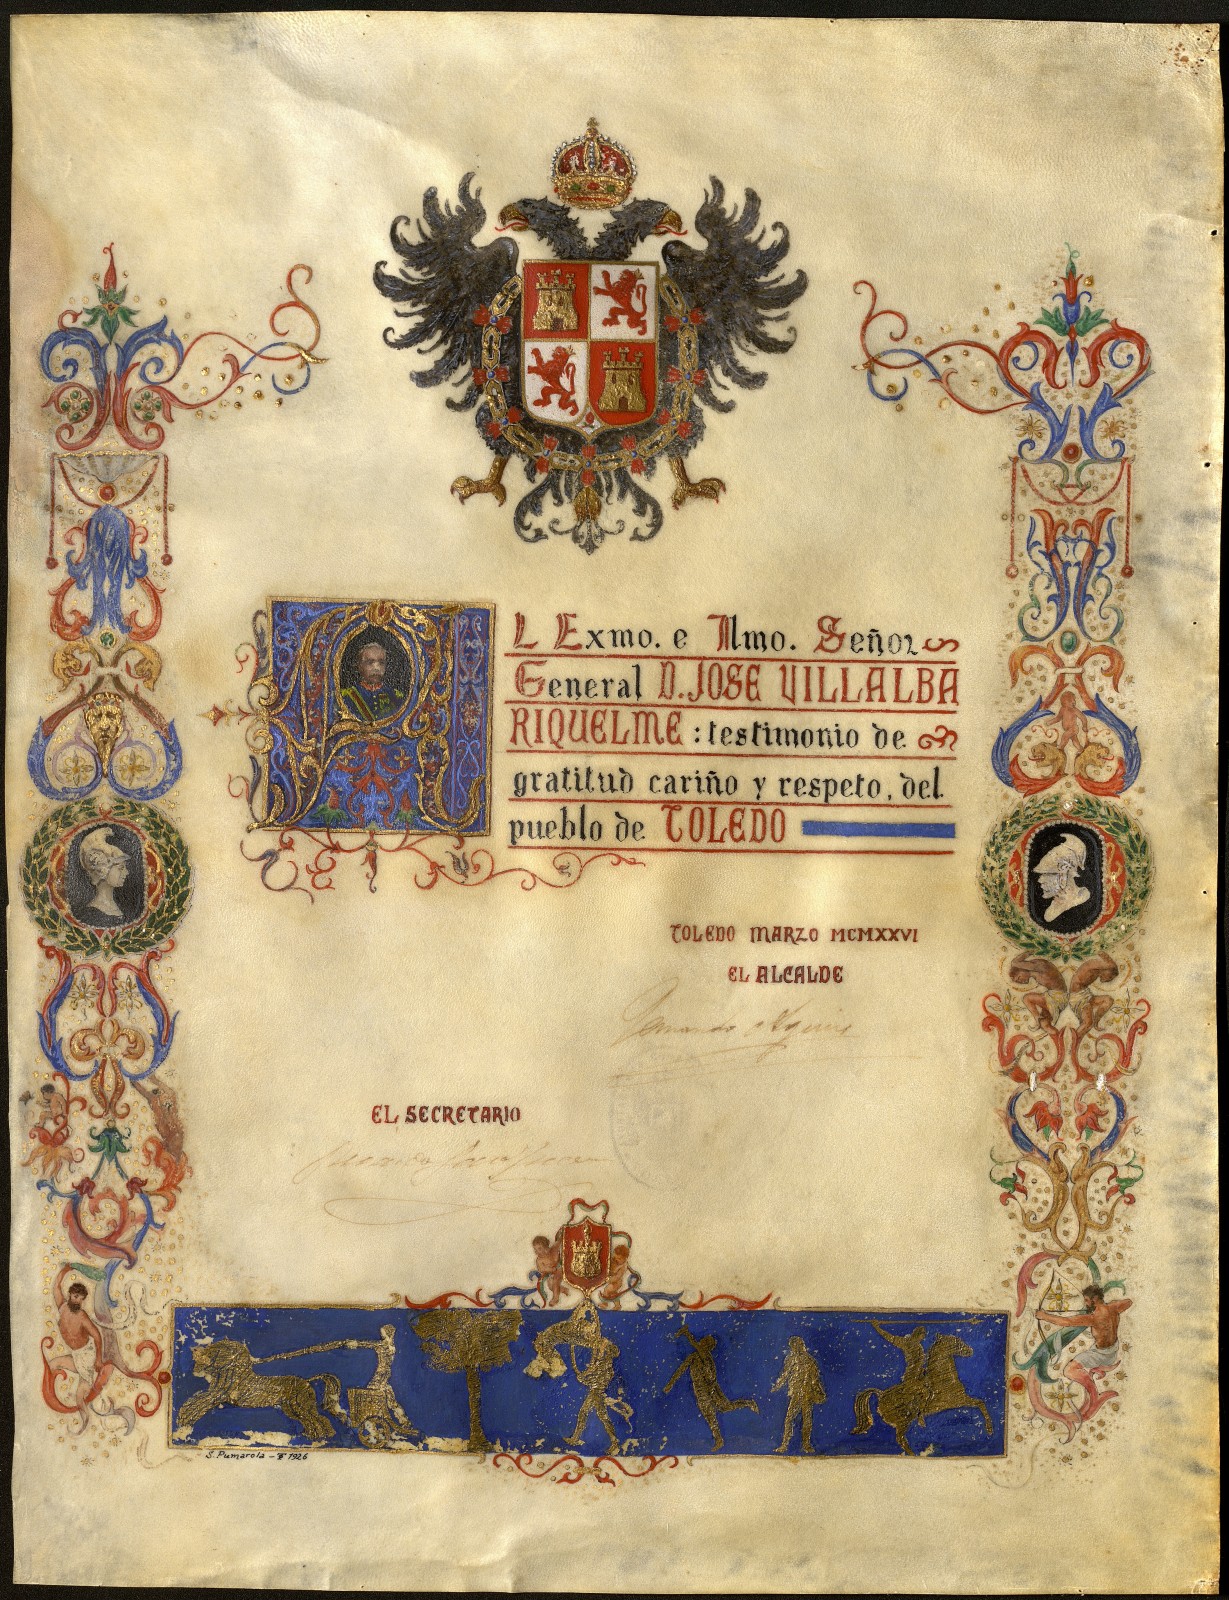 AL Exmo. e Ilmo. Señor
General D. JOSE VILLALBA
RIQUELME : testimonio de
gratitud cariño y respeto, del
pueblo de TOLEDO
TOLEDO MARZO MCMXXVI
EL ALCALDE
Fernando Aguirre
EL SECRETARIO
S. Pumarola - 1926